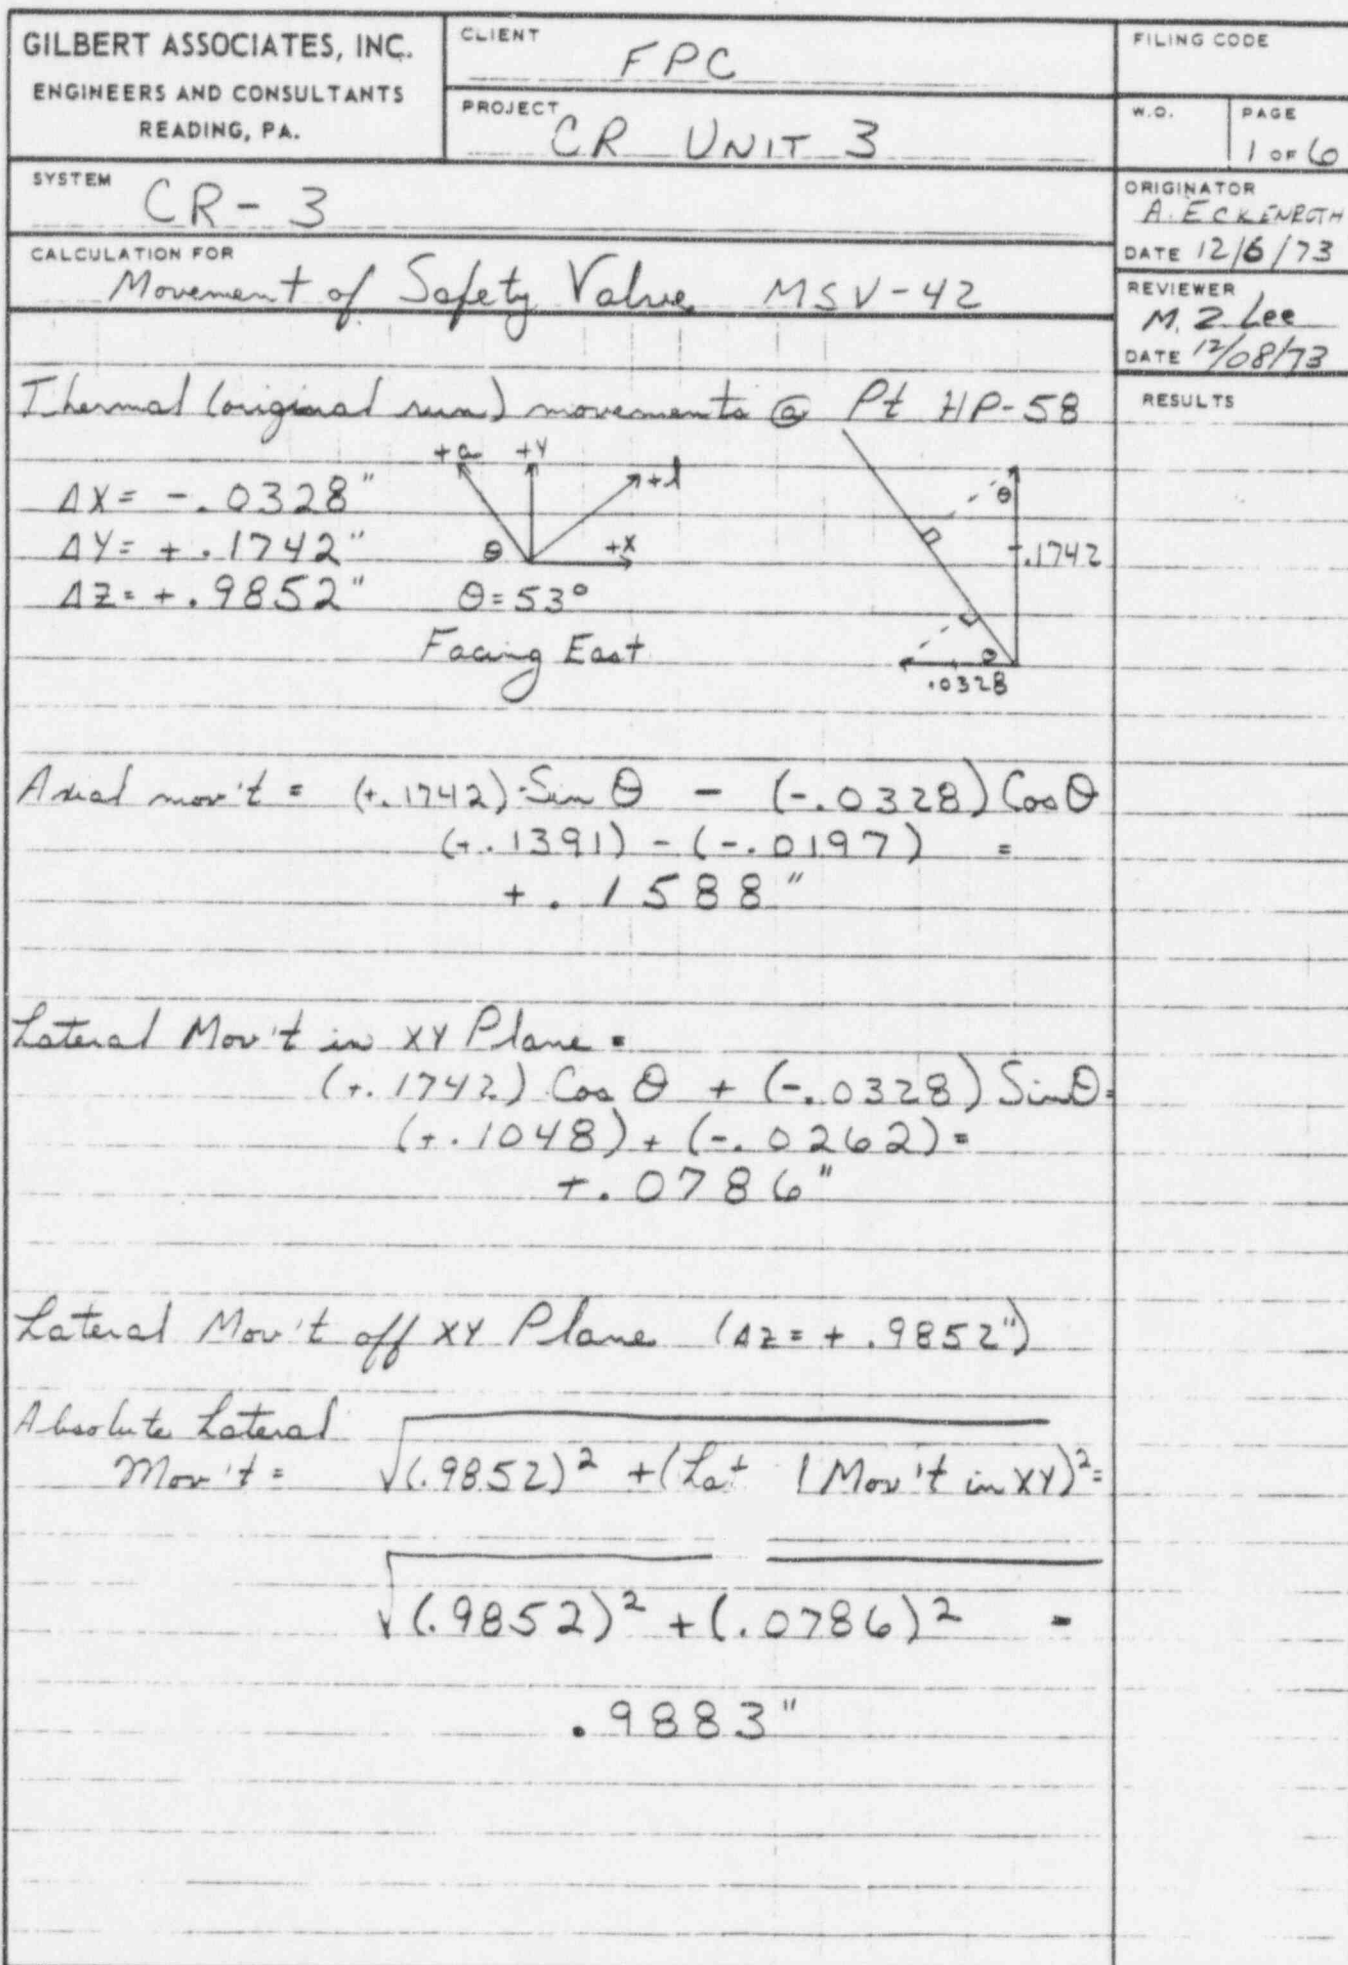 GILBERT ASSOCIATES, INC.
ENGINEERS AND CONSULTANTS
READING, PA.
CLIENT
FPC
PROJECT
CR UNIT 3
FILING CODE
W.O.
PAGE
1 OF 6
SYSTEM
CR-3
ORIGINATOR
A. ECKENROTH
DATE 12/6/73
CALCULATION FOR
Movement of Safety Valve MSV-42
REVIEWER
M. Z. Lee
DATE 12/08/73
RESULTS
Thermal (original run) movements @ Pt HP-58
+a +Y +l
ΔX = -.0328"
ΔY = +.1742"
ΔZ = +.9852"
θ +X
θ = 53°
Facing East
θ
.1742
θ
.0328
Axial mov't = (+.1742) Sin θ - (-.0328) Cos θ
(+.1391) - (-.0197) =
+.1588"
Lateral Mov't in XY Plane =
(+.1742) Cos θ + (-.0328) Sin θ =
(+.1048) + (-.0262) =
+.0786"
Lateral Mov't off XY Plane (ΔZ = +.9852")
Absolute Lateral
Mov't = √(.9852)² + (Lat l Mov't in XY)² =
√(.9852)² + (.0786)² =
.9883"